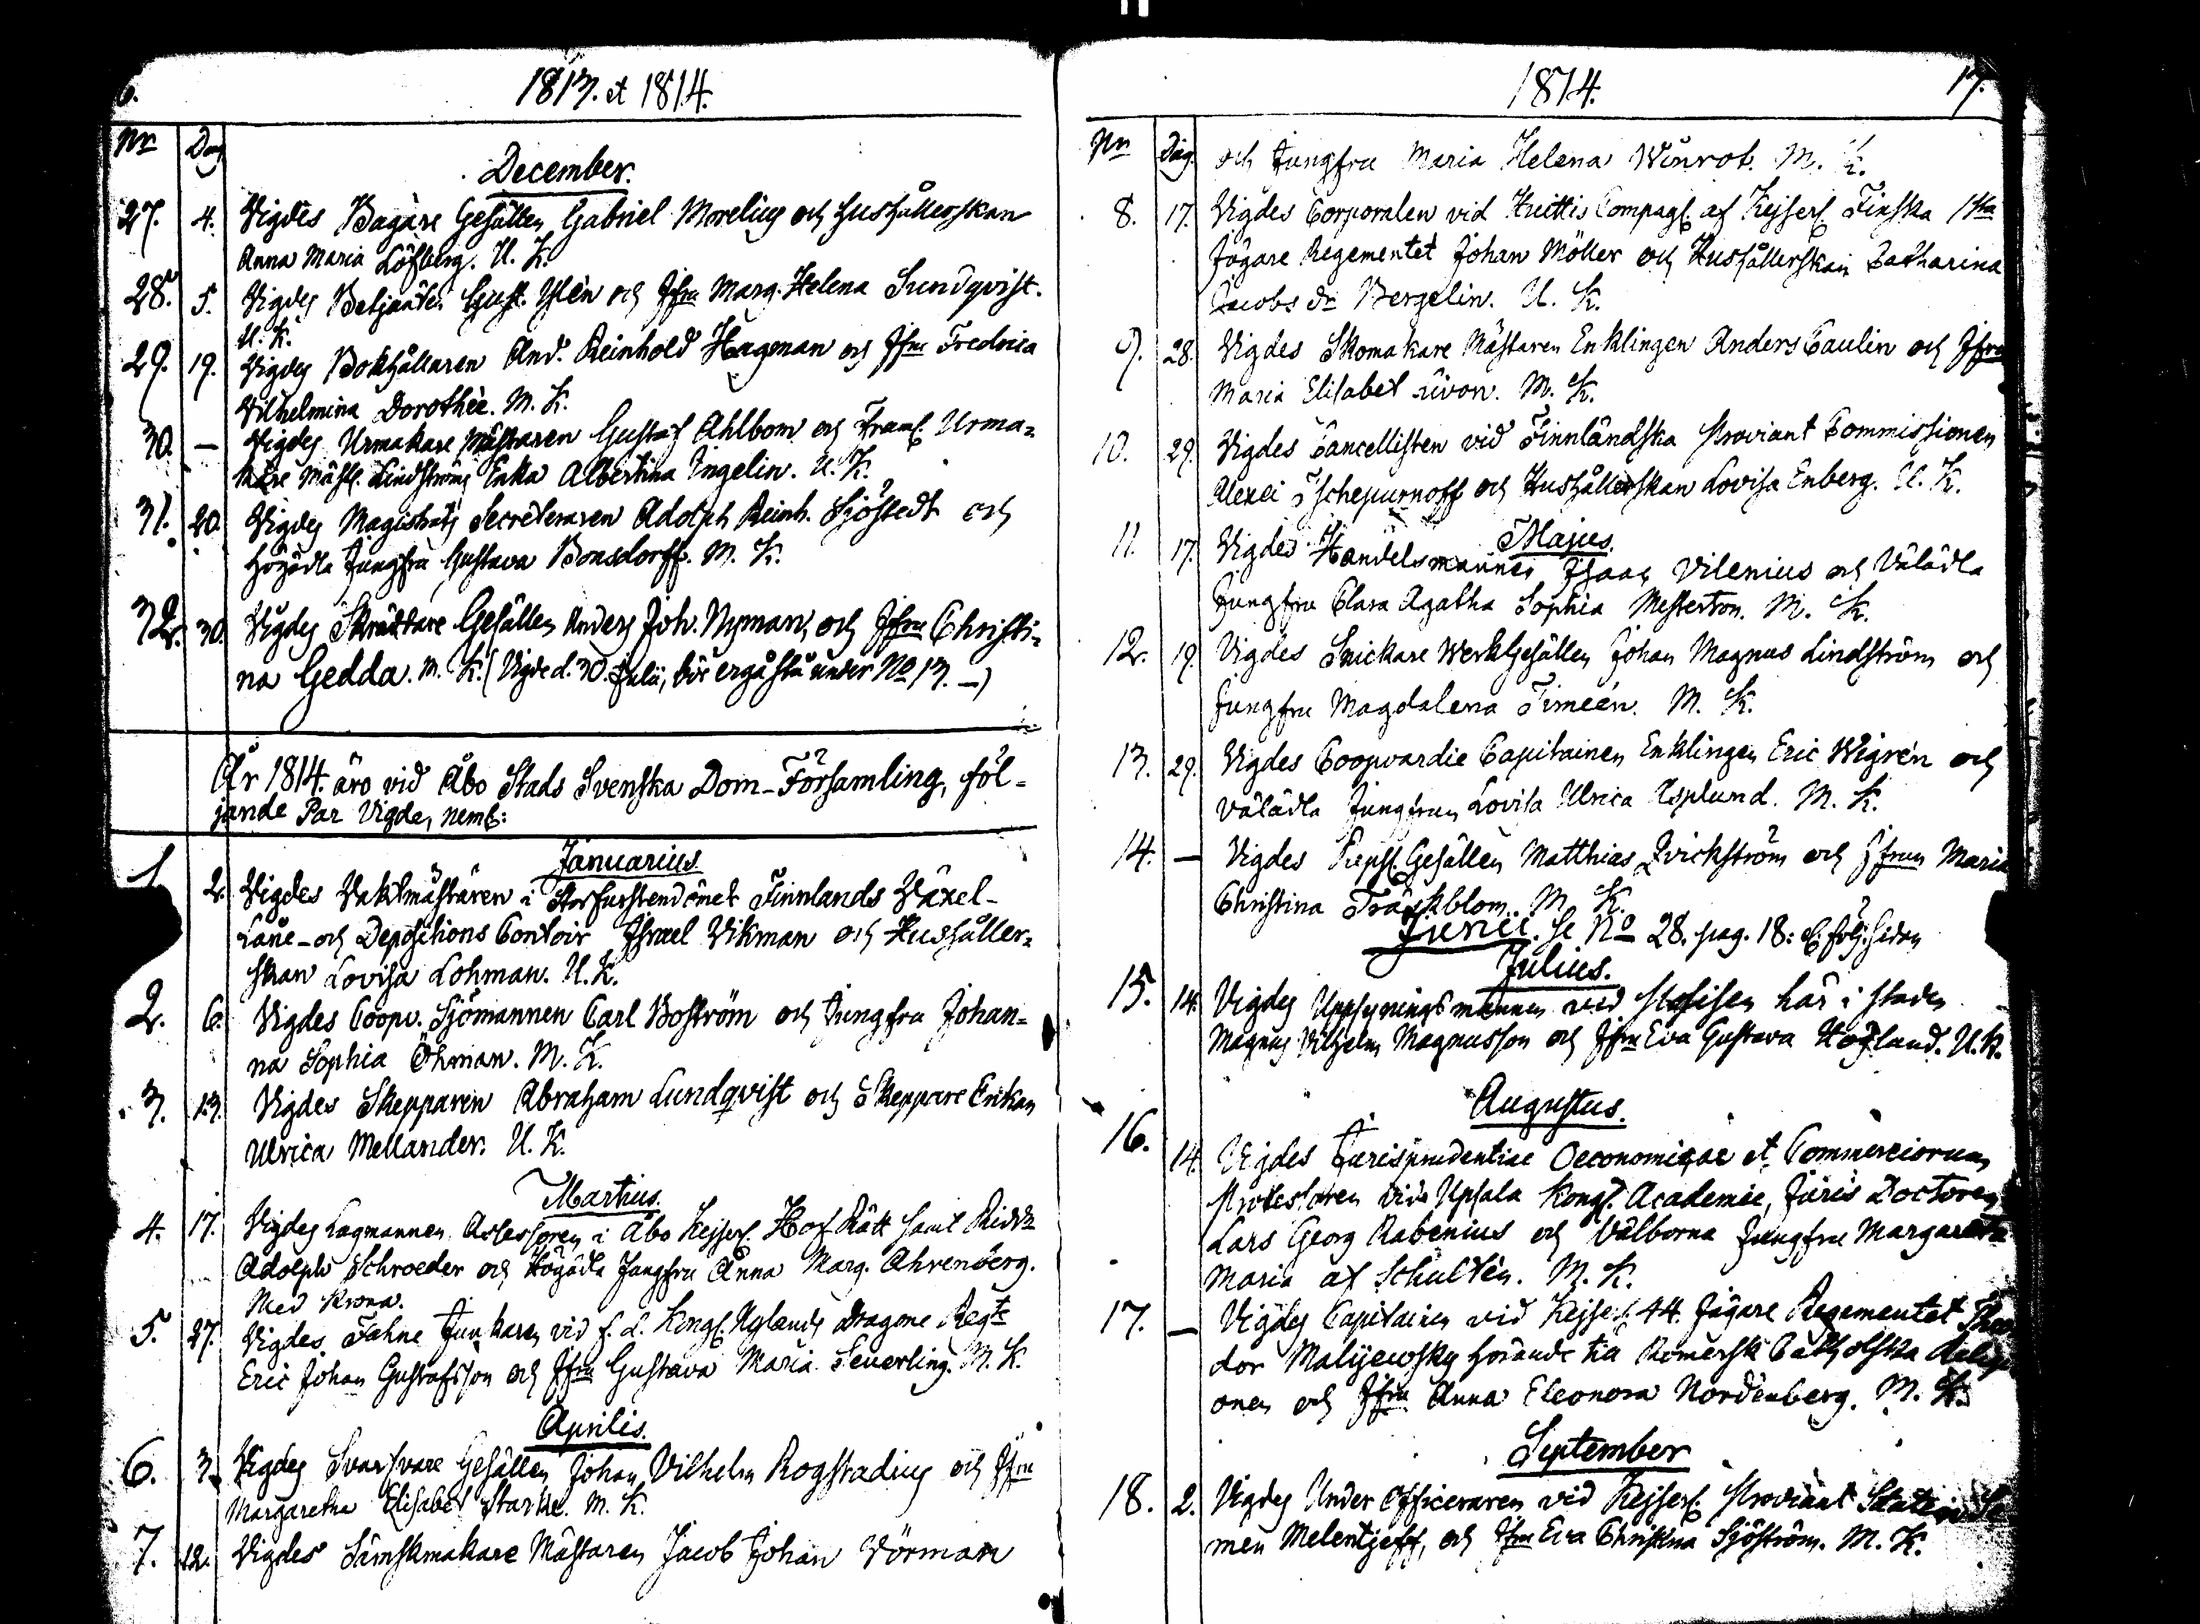 6.
1813. et 1814.
Nr Dag
December.
27. 4. Vigdes Bagare Gesällen Gabriel Morelius och Hushållerskan
Anna Maria Löfberg. U. K.
28. 5. Vigdes Betjänten Gust. Ylén och Jfru Marg. Helena Sundqvist.
U. K.
29. 19. Vigdes Bokhållaren And. Reinhold Hagman och Jfru Fredrica
Vilhelmina Dorothée. M. K.
30. — Vigdes Urmakare Mästaren Gustaf Ahlbom och Framl. Urma-
kare Mäst. Lindströms Enka Albertina Ingelin. U. K.
31. 20. Vigdes Magistrats Secreteraren Adolph Reinh. Sjöstedt och
Högädla Jungfru Gustava Bonsdorff. M. K.
32. 30. Vigdes Skräddare Gesällen Anders Joh. Nyman, och Jfru Christi-
na Gedda. M. K. (Vigde d. 30. Julii, bör stå under No 13. —)
År 1814. äro vid Åbo Stads Svenska Dom-Församling, föl-
jande Par Vigde, neml:
Januarius.
1 2. Vigdes Vaktmästaren i Storfurstendömet Finnlands Växel-
Låne- och Depositions Contoir Israel Vikman och Hushåller-
skan Lovisa Lohman. U. K.
2. 6. Vigdes Coopv. Sjömannen Carl Boström och Jungfru Johan-
na Sophia Öhman. M. K.
3. 13. Vigdes Skepparen Abraham Lundqvist och Skeppare Enkan
Ulrica Mellander. U. K.
Martius.
4. 17. Vigdes Lagmannen Assessoren i Åbo Kejserl. Hof Rätt samt Ridd.
Adolph Schroeder och Högädla Jungfru Anna Marg. Ahrenberg.
Med Krona.
5. 27. Vigdes Fahne Junkaren vid f. d. Kongl. Nylands Dragone Regte
Eric Johan Gustafsson och Jfru Gustava Maria Seuerling. M. K.
Aprilis.
6. 3. Vigdes Svarfvare Gesällen Johan Vilhelm Rogstadius och Jfru
Margaretha Elisabet Starke. M. K.
7. 12. Vigdes Sämskmakare Mästaren Jacob Johan Vörman
1814. 17.
Nr Dag.
och Jungfru Maria Helena Winrot. M. K.
8. 17. Vigdes Corporalen vid Huittis Compagl. af Kejserl. Finska 1sta
Jägare Regementet Johan Möller och Hushållerskan Catharina
Jacobs dr Bergelin. U. K.
9. 28. Vigdes Skomakare Mästaren Enklingen Anders Caulin och Jfru
Maria Elisabet M. K.
10. 29. Vigdes Cancellisten vid Finnländska Proviant Commissionen
Alexei Tschepurnoff och Hushållerskan Lovisa Enberg. U. K.
Majus.
11. 17. Vigdes Handelsmannen Isaac Vilenius och Välädla
Jungfru Clara Agatha Sophia Mesterton. M. K.
12. 19. Vigdes Snickare Werkgesällen Johan Magnus Lindström och
Jungfru Magdalena Timeén. M. K.
13. 29. Vigdes Coopvardie Capitainen Enklingen Eric Wigrén och
Välädla Jungfrun Lovisa Ulrica Asplund. M. K.
14. — Vigdes Repsl. Gesällen Matthias Qvickström och Jfrun Maria
Christina Träskblom. M. K.
Junii. Se No 28. pag. 18: å följ. sidan
Julius.
15. 14. Vigdes Uppsyningsmannen vid här i staden
Magnus Vilhelm Magnusson och Jfru Eva Gustava Höglund. U. K.
Augustus.
16. 14. Vigdes Jurisprudentiae Oeconomicae et Commerciorum
Professoren vid Upsala Kongl. Academie, Juris Doctoren
Lars Georg Rabenius och Välborna Jungfru Margareta
Maria af Schultén. M. K.
17. — Vigdes Capitainen vid Kejserl. 44. Jägare Regementet Theo
dor Malijewsky hörande till Romersk Catholska Religi
onen och Jfru Anna Eleonora Nordenberg. M. K.
September
18. 2. Vigdes Under Officeraren vid Kejserl. Proviant Staten Se
men Melentjeff, och Jfru Eva Christina Sjöström. M. K.